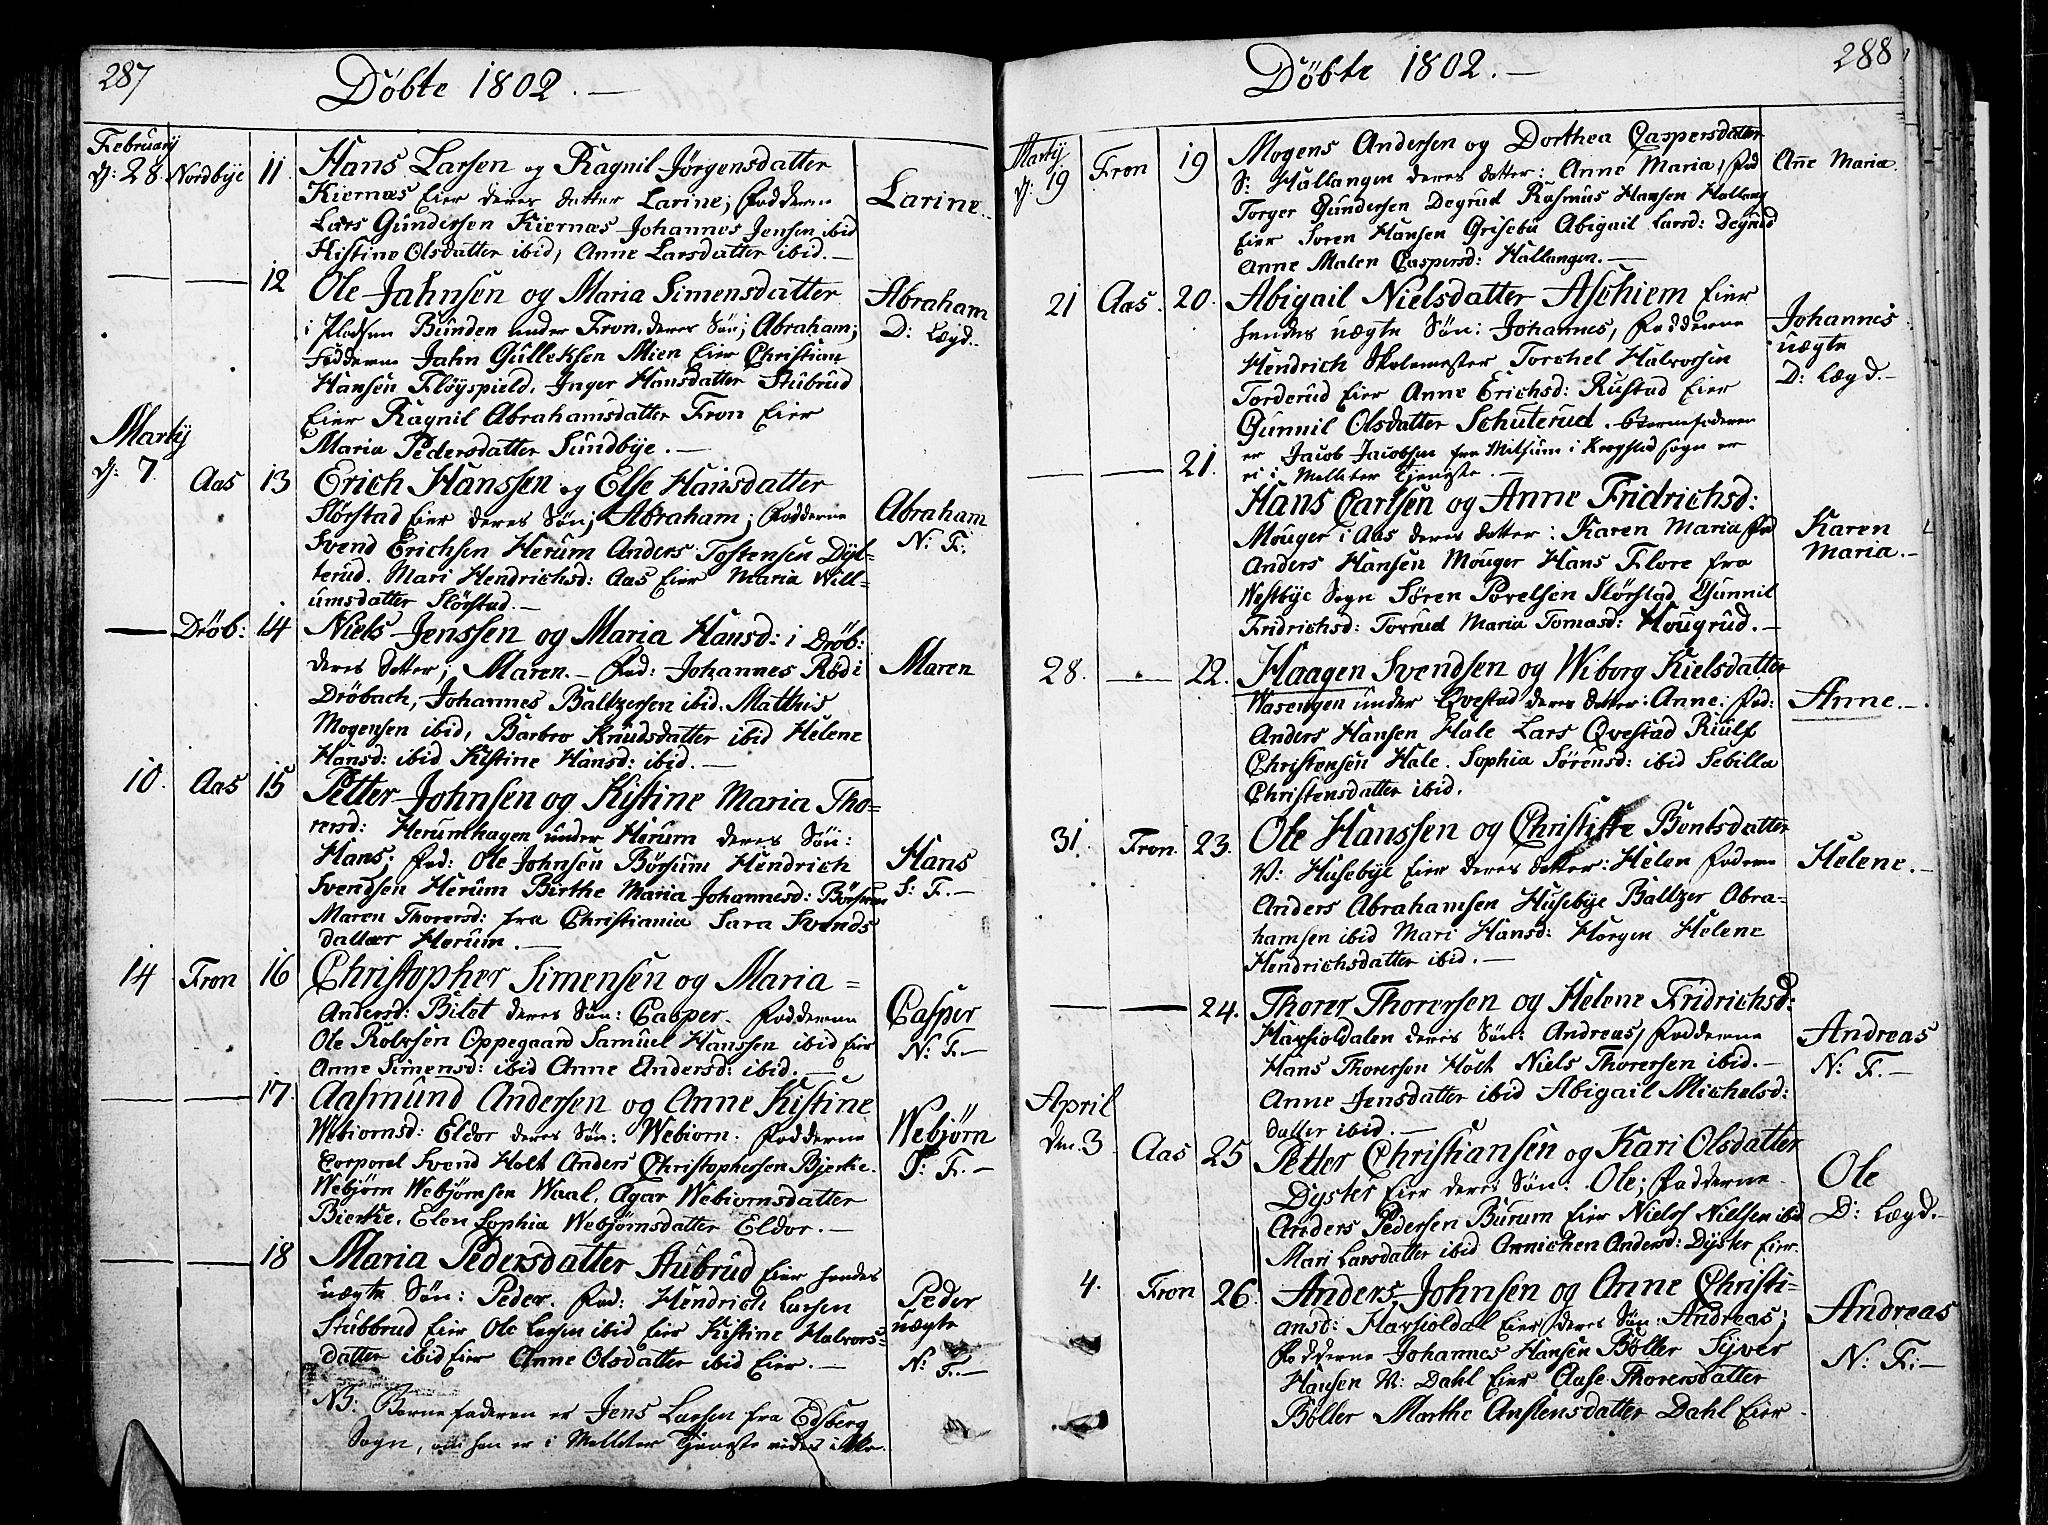 287
Döbte 1802.—
February
d: 28. Nordbye 11. Hans Larsen og Ragnil Jörgensdatter
Kiernæs Eier deres datter Larine; Fadderne
Larine.
Lars Gundersen Kiernæs Johannes Jensen ibid
Kistine Olsdatter ibid, Anne Larsdatter ibid.—
12 Ole Jahnsen og Maria Simensdatter
i Pladsen Bunden under Fron, deres Sön; Abraham;
Abraham
D: Lægd.
Fadderne Jahn Gulleksen Mien Eier Christian
Hansen Flöyspield, Inger Hansdatter Stubrud
Eier Ragnil Abrahamsdatter Fron Eier
Maria Pedersdatter Sundbye.—
Martij
d: 7. Aas 13 Erich Hanssen og Else Hansdatter
Slörstad Eier deres Sön; Abraham; Fadderne
Abraham
N: F:
Svend Erichsen Herum Anders Tostensen Dys-
terud. Mari Hendrichsd: Aas Eier Maria Will-
umsdatter Slörstad.—
— Dröb: 14 Niels Jenssen og Maria Hansd: i Dröb:
deres datter; Maren.— Fad: Johannes Röd i
Maren
Dröbach, Johannes Baltzersen ibid. Matthis
Mogensen ibid, Barbro Knudsdatter ibid Helene
Hansd: ibid Kistine Hansd: ibid.—
10. Aas 15 Petter Johnsen og Kistine Maria Tho=
rersd: Herumhagen under Herum deres Sön:
Hans; Fad: Ole Johnsen Börsum Hendrich
Hans
S: F.—
Svendsen Herum Birthe Maria Johannesd: Börsum
Maren Thorersd: fra Christiania Sara Svends
datter Herum.—
14 Fron 16 Christopher Simensen og Maria=
Andersd: Bilet deres Sön: Casper. Fadderne
Casper
N: F.—
Ole Rolvsen Oppegaard Samuel Hanssen ibid Eier
Anne Simensd: ibid Anne Andersd: ibid.—
17. Aasmund Andersen og Anne Kistine
Webiornsd: Eldor deres Sön: Webiorn. Fadderne
Webjörn
S: F.—
Corporel Svend Holt Anders Christophersen Bjerke.
Webjörn Webjörnsen Waal, Agar Webiornsdatter
Bierke, Elen Sophia Webjörnsdatter Eldor.—
18 Maria Pedersdatter Stubrud Eier hendes
uægte Sön: Peder. Fad: Hendrich Larsen
Peder
uægte
N: F.—
Stubbrud Eier Ole Larsen ibid Eier Kistine Halvors-
datter ibid Eier Anne Olsdatter ibid Eier.—
NB: Barnefaderen er Jens Larsen fra Edsberg
Sogn, om han er i Melliter Tjeneste vides ikke.

288
Döbte 1802.—
Martij
d: 19 Fron 19 Mogens Andersen og Dorthea Caspersdatter
S: Hallangen deres datter: Anne Maria, Fad
Anne Maria.
Torger Gundersen Degrud Rasmus Hansen Hallang
Eier Soren Hansen Grisebu Abigail Larsd: Degrud
Anne Malen Caspersd: Hallangen.—
21 Aas. 20. Abigail Nielsdatter Aschiem Eier
hendes uægte Sön: Johannes, Fadderne
Johannes
uægte
D: Lægd.—
Hendrich Skolemester Torchel Halvorsen
Torderud Eier Anne Erichsd: Rustad Eier
Gunnil Olsdatter Schuterud. Barnefaderen
er Jacob Jacobsen fra Mitsum i Krogstad Sogn er
ei i Melliter Tjeneste.—
21. Hans Carlsen og Anne Fridrichsd:
Mouger i Aas deres datter: Karen Maria Fad
Karen
Maria.—
Anders Hansen Mouger Hans Flore fra
Westbye Sogn Sören Povelsen Slörstad Gunnil
Fridrichsd: Torrud Maria Tomasd: Hougrud.—
28. — 22. Haagen Svendsen og Wiborg Kielsdatter
Wasengen under Qvestad deres datter: Anne; Fad:
Anne.—
Anders Hansen Hale Lars Qvestad Riulf
Christensen Hale. Sophia Sörensd: ibid Sebilla
Christensdatter ibid.
31. Fron 23. Ole Hanssen og Christiste Bentsdatter
V: Husebye Eier deres datter: Helen Faderne
Helene.—
Anders Abrahamsen Husebye Baltzer Abra-
hamsen ibid Mari Hansd: Horgen Helene
Hendrichsdatter ibid.—
24. Thorer Thorersen og Helene Fridrichsd:
Haxioldalen deres Sön: Andreas, Fadderne
Andreas
N: F.—
Hans Thorersen Holt Niels Thorersen ibid.—
Anne Jensdatter ibid Abigail Michelsd:
datter ibid.—
April
den 3 Aas 25 Petter Christiansen og Kari Olsdatter
Dyster Eier deres Sön: Ole; Fadderne.
Ole
D: Lægd.—
Anders Pedersen Burum Eier Niels Nilsen ibid
Mari Larsdatter ibid Annichen Andersd: Dyster Eier.
4. Fron 26. Anders Johnsen og Anne Christi-
ansd: Haxioldal Eier deres Sön: Andreas;
Andreas
N: F.—
Fadderne Johannes Hansen Böller Syver
Hansen V: Dahl Eier Aase Thorersdatter
Böller Marthe Anstensdatter Dahl Eier.